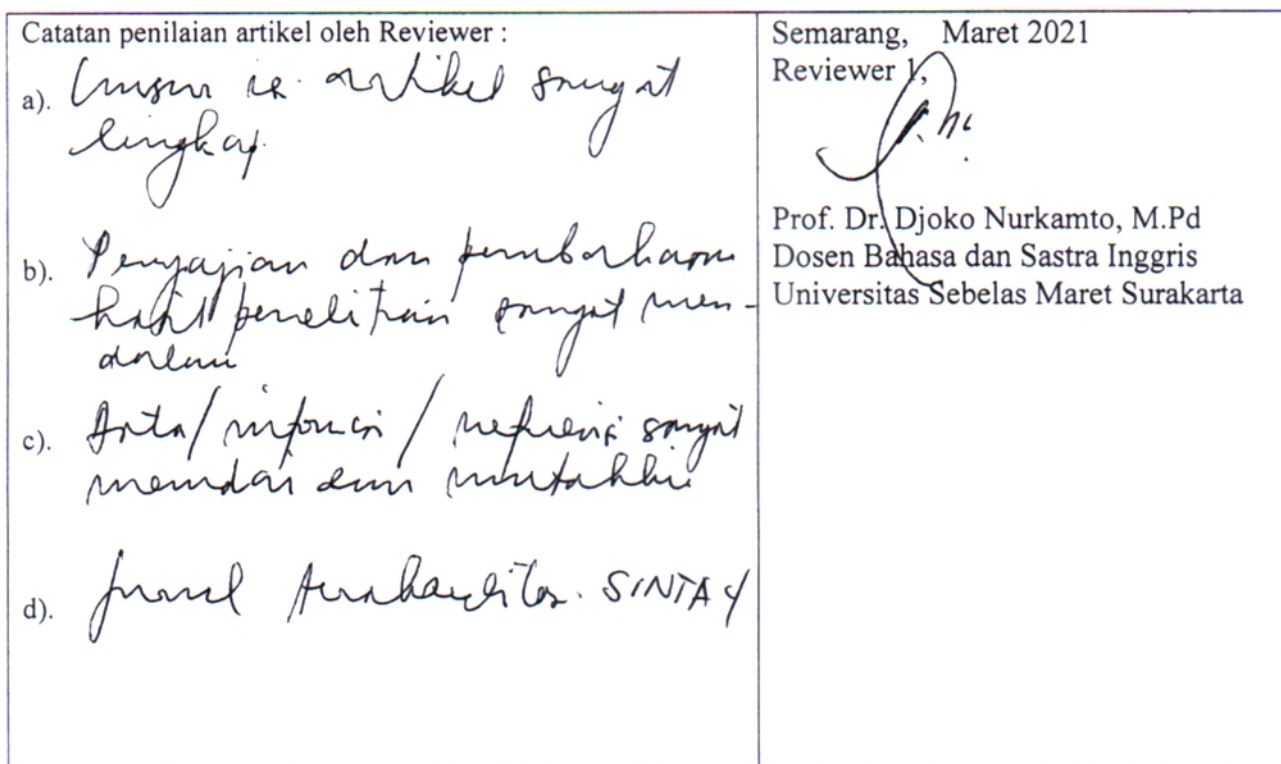 Catatan penilaian artikel oleh Reviewer :
a). Unsur isi artikel sangat
lengkap.
b). Penyajian dan pembahasan
hasil penelitian sangat men-
dalam
c). Data/informasi/referensi sangat
memadai dan mutakhir
d). Jurnal terakreditasi SINTA 4
Semarang, Maret 2021
Reviewer 1,
Prof. Dr. Djoko Nurkamto, M.Pd
Dosen Bahasa dan Sastra Inggris
Universitas Sebelas Maret Surakarta